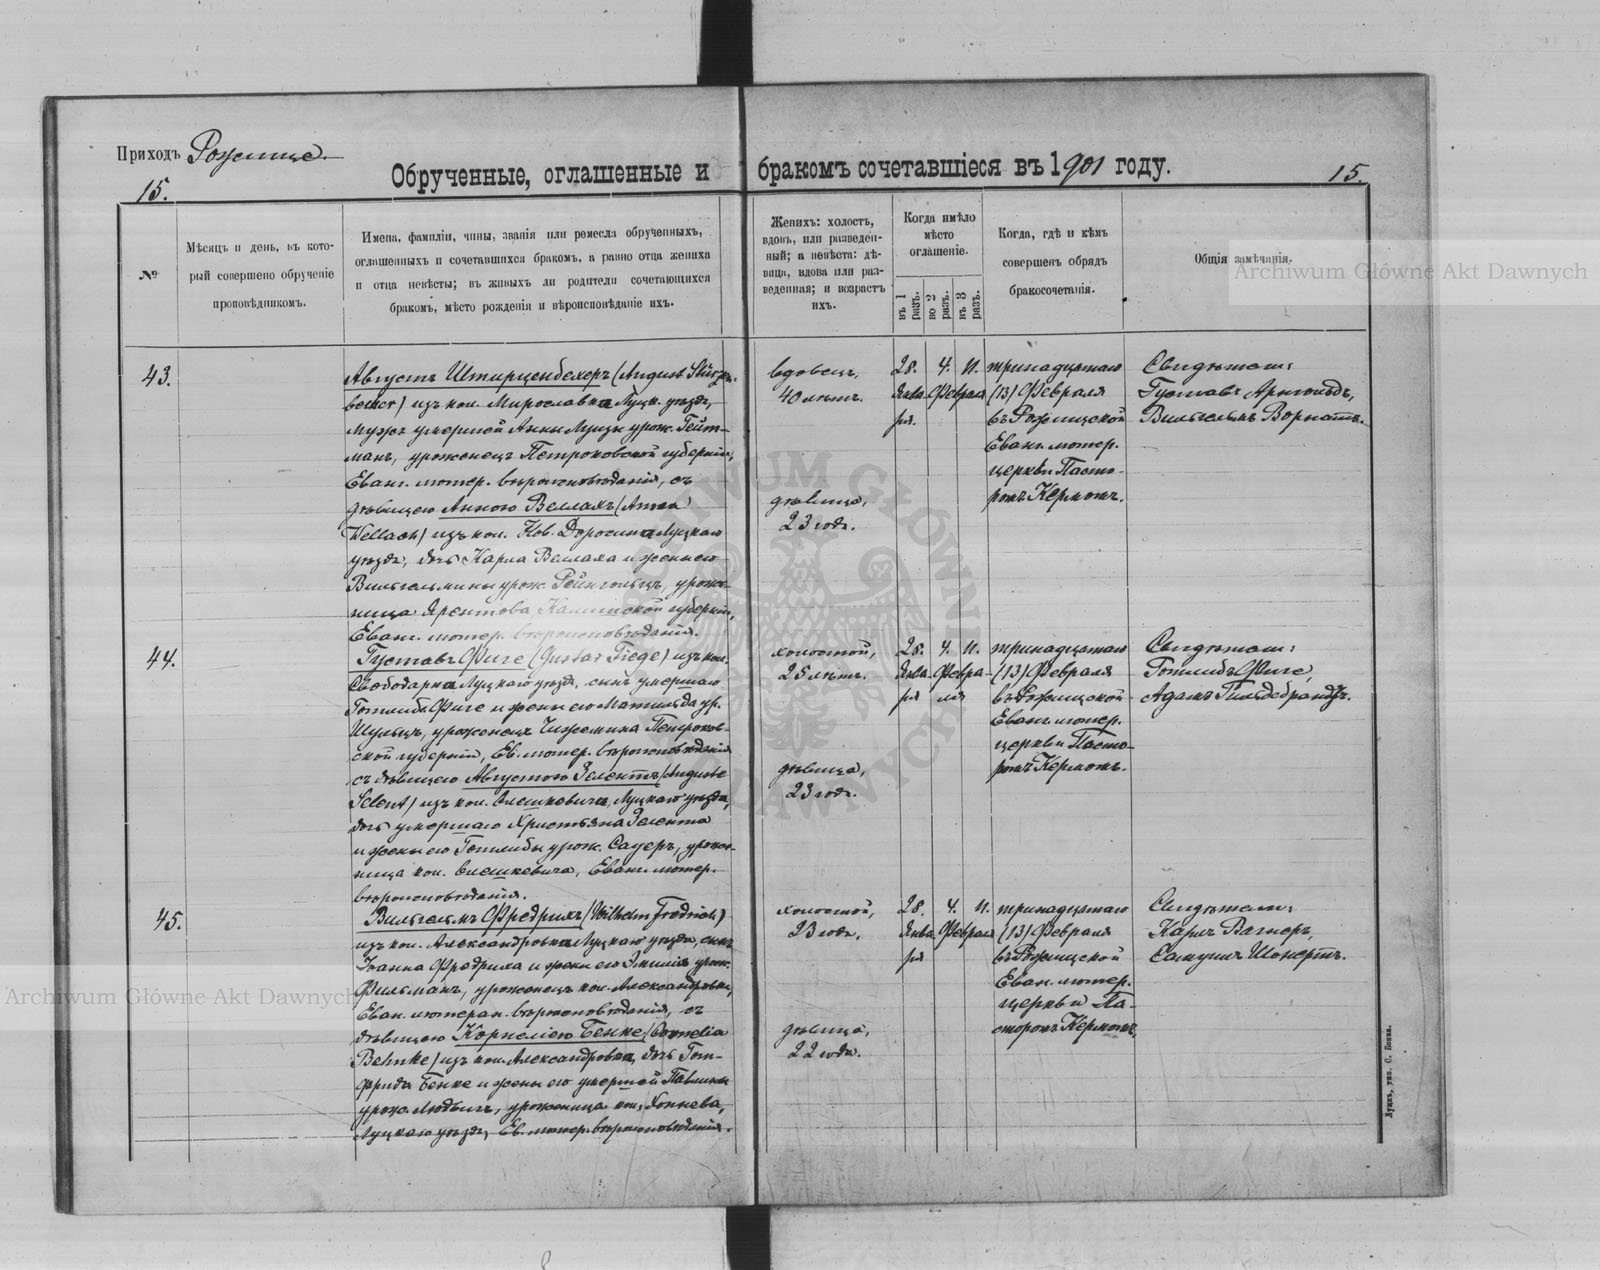 Приходъ Рожище.
15.
Обрученные, оглашенные и бракомъ сочетавшіеся въ 1901 году.
15.
№
Мѣсяцъ и день, въ кото-
рый совершено обрученіе
проповѣдникомъ.
Имена, фамиліи, чины, званія или ремесла обрученныхъ,
оглашенныхъ и сочетавшихся бракомъ, а равно отца жениха
и отца невѣсты; въ живыхъ ли родители сочетающихся
бракомъ, мѣсто рожденія и вѣроисповѣданіе ихъ.
Женихъ: холостъ,
вдовъ, или разведен-
ный; а невѣста: дѣ-
вица, вдова или раз-
веденная; и возрастъ
ихъ.
Когда имѣло
мѣсто
оглашеніе.
въ 1 разъ.
во 2 разъ.
въ 3 разъ.
Когда, гдѣ и кѣмъ
совершенъ обрядъ
бракосочетанія.
Общія замѣчанія.
43.
Августъ Штирценбехеръ (August Stürzen-
becher) изъ кол. Мирославка Луцк. уѣзда,
мужъ умершей Анны Луизы урож. Гейт-
манъ, уроженецъ Петроковской губерніи,
Еванг. лютер. вѣроисповѣданія, съ
дѣвицею Анною Веллахъ (Anna
Wellach) изъ кол. Нов. Доросинъ Луцкаго
уѣзда, дочь Карла Веллаха и жены его
Вильгельмины урож. Рейнгольцъ, урожен-
ница Калишской губерніи,
Еванг. лютер. вѣроисповѣданія.
вдовецъ,
40 лѣтъ.
дѣвица,
23 года.
28. 4. 11.
Янва- Февраля
ря.
тринадцатаго
(13) Февраля
въ Рожищской
Еванг. лютер.
церкви Пасто-
ромъ Кермомъ.
Свидѣтели:
Густавъ Арнгольдъ,
Вильгельмъ Ворнатъ.
44.
Густавъ Фиге (Gustav Fiege) изъ кол.
Свободарка Луцкаго уѣзда, сынъ умершаго
Готлиба Фиге и жены его Матильда ур.
Шульцъ, уроженецъ Чижемина Петроков-
ской губерніи, Ев. лютер. вѣроисповѣданія
съ дѣвицею Августою Зелентъ (Auguste
Selent) изъ кол. Олешкевича, Луцкаго уѣзда,
дочь умершаго Христьяна Зелента
и жены его Готлибы урож. Сауеръ, урожен-
ница кол. Олешкевича, Еванг. лютер.
вѣроисповѣданія.
холостой,
25 лѣтъ.
дѣвица,
23 года.
28. 4. 11.
Янва- Февра-
ря ля
тринадцатаго
(13) Февраля
въ Рожищской
Еванг. лютер.
церкви Пасто-
ромъ Кермомъ.
Свидѣтели:
Готлибъ Фиге,
Адамъ Гильдебрандъ.
45.
Вильгельмъ Фредрихъ (Wilhelm Fredrich)
изъ кол. Александровка Луцкаго уѣзда, сынъ
Іоанна Фредриха и жены его Эмилія урож.
Фильманъ, уроженецъ кол. Александровки,
Еван. лютеран. вѣроисповѣданія, съ
дѣвицею Корнелією Бенке (Cornelia
Behnke) изъ кол. Александровка, дочь Гот-
фрида Бенке и жены его умершей Павлины
урож. Людвигъ, уроженица кол.
Луцкаго уѣзда, Ев. лютер. вѣроисповѣданія.
холостой,
23 года,
дѣвица,
22 года.
28. 4. 11.
Янва- Февраля
ря
тринадцатаго
(13) Февраля
въ Рожищской
Еван. лютер.
церкви Па-
сторомъ Кермомъ.
Свидѣтели:
Карлъ Вагнеръ,
Самуилъ Шонертъ.
Луцкъ, тип. С. Бонка.
Archiwum Główne Akt Dawnych
Archiwum Główne Akt Dawnych
ARCHIWUM GŁÓWNE AKT DAWNYCH